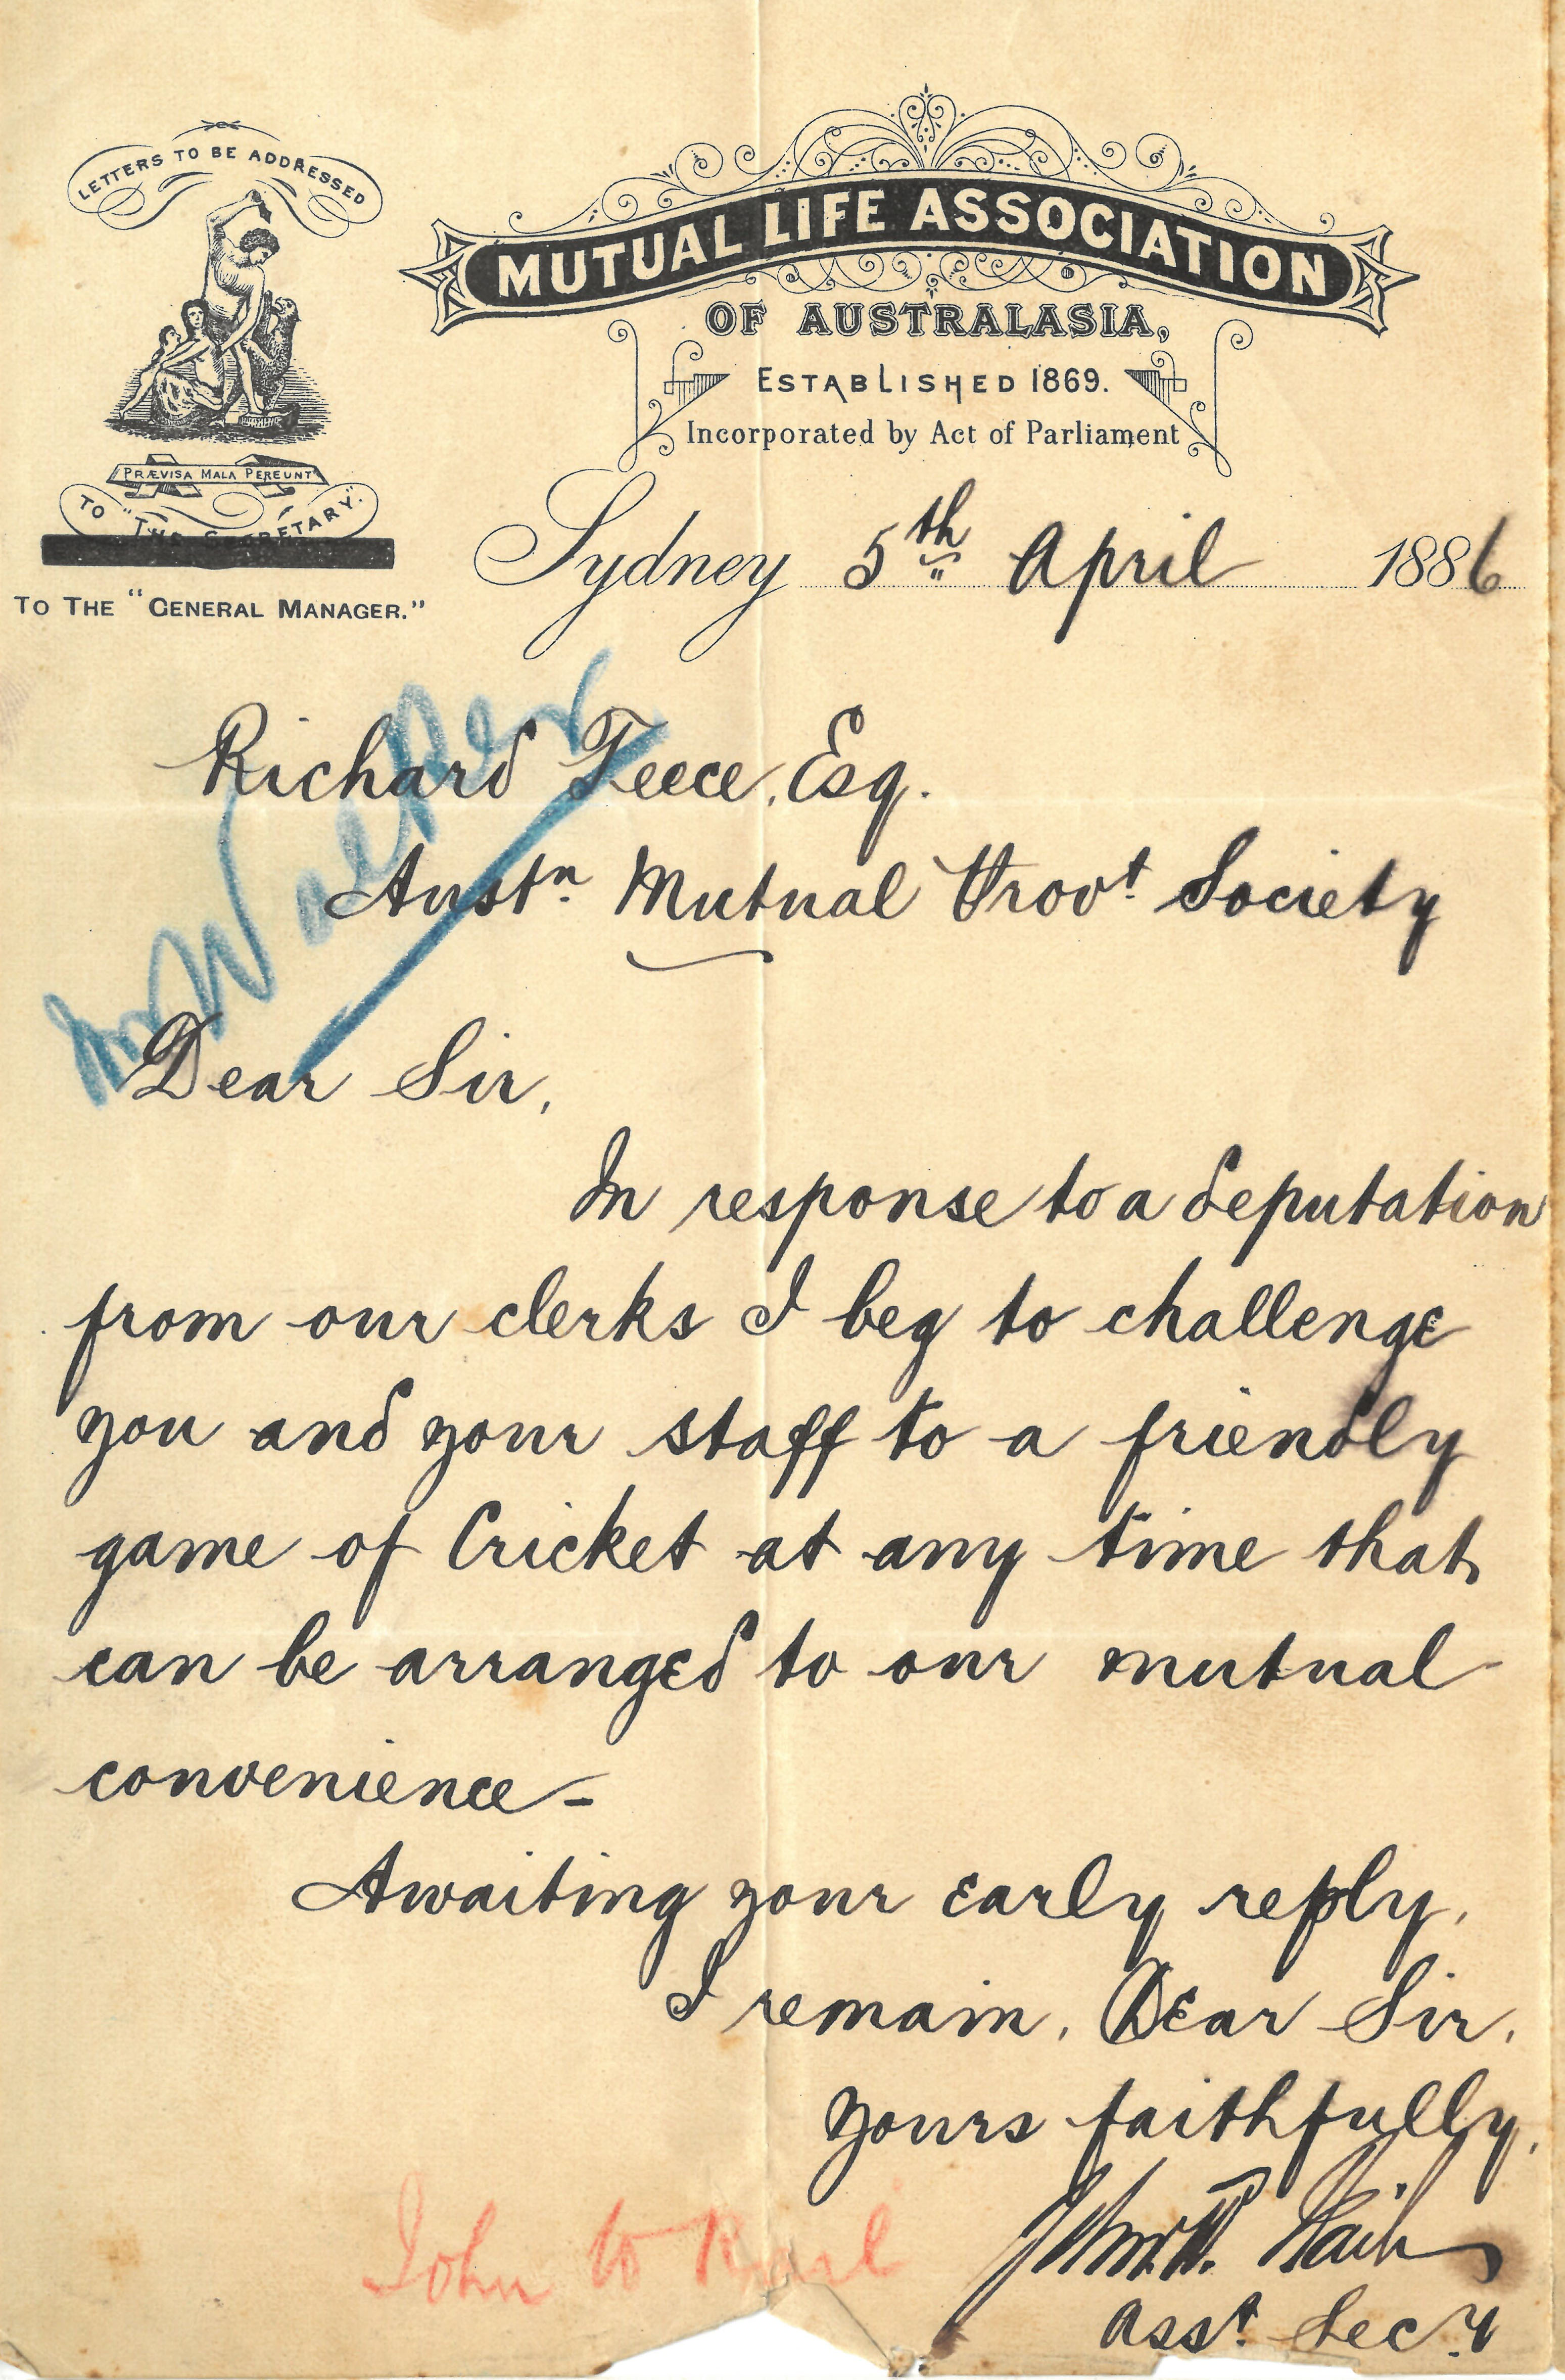 LETTERS TO BE ADDRESSED
PRÆVISA MALA PEREUNT
TO "THE SECRETARY."
TO THE "GENERAL MANAGER."
MUTUAL LIFE ASSOCIATION
OF AUSTRALASIA,
ESTABLISHED 1869.
Incorporated by Act of Parliament
Sydney 5th April 1886
Mr Walker
Richard Teece, Esq.
Austn. Mutual Provt. Society
Dear Sir,
In response to a deputation
from our clerks I beg to challenge
you and your staff to a friendly
game of Cricket at any time that
can be arranged to our mutual
convenience -
Awaiting your early reply,
I remain, Dear Sir,
Yours faithfully,
John
Asst. Secy
John to